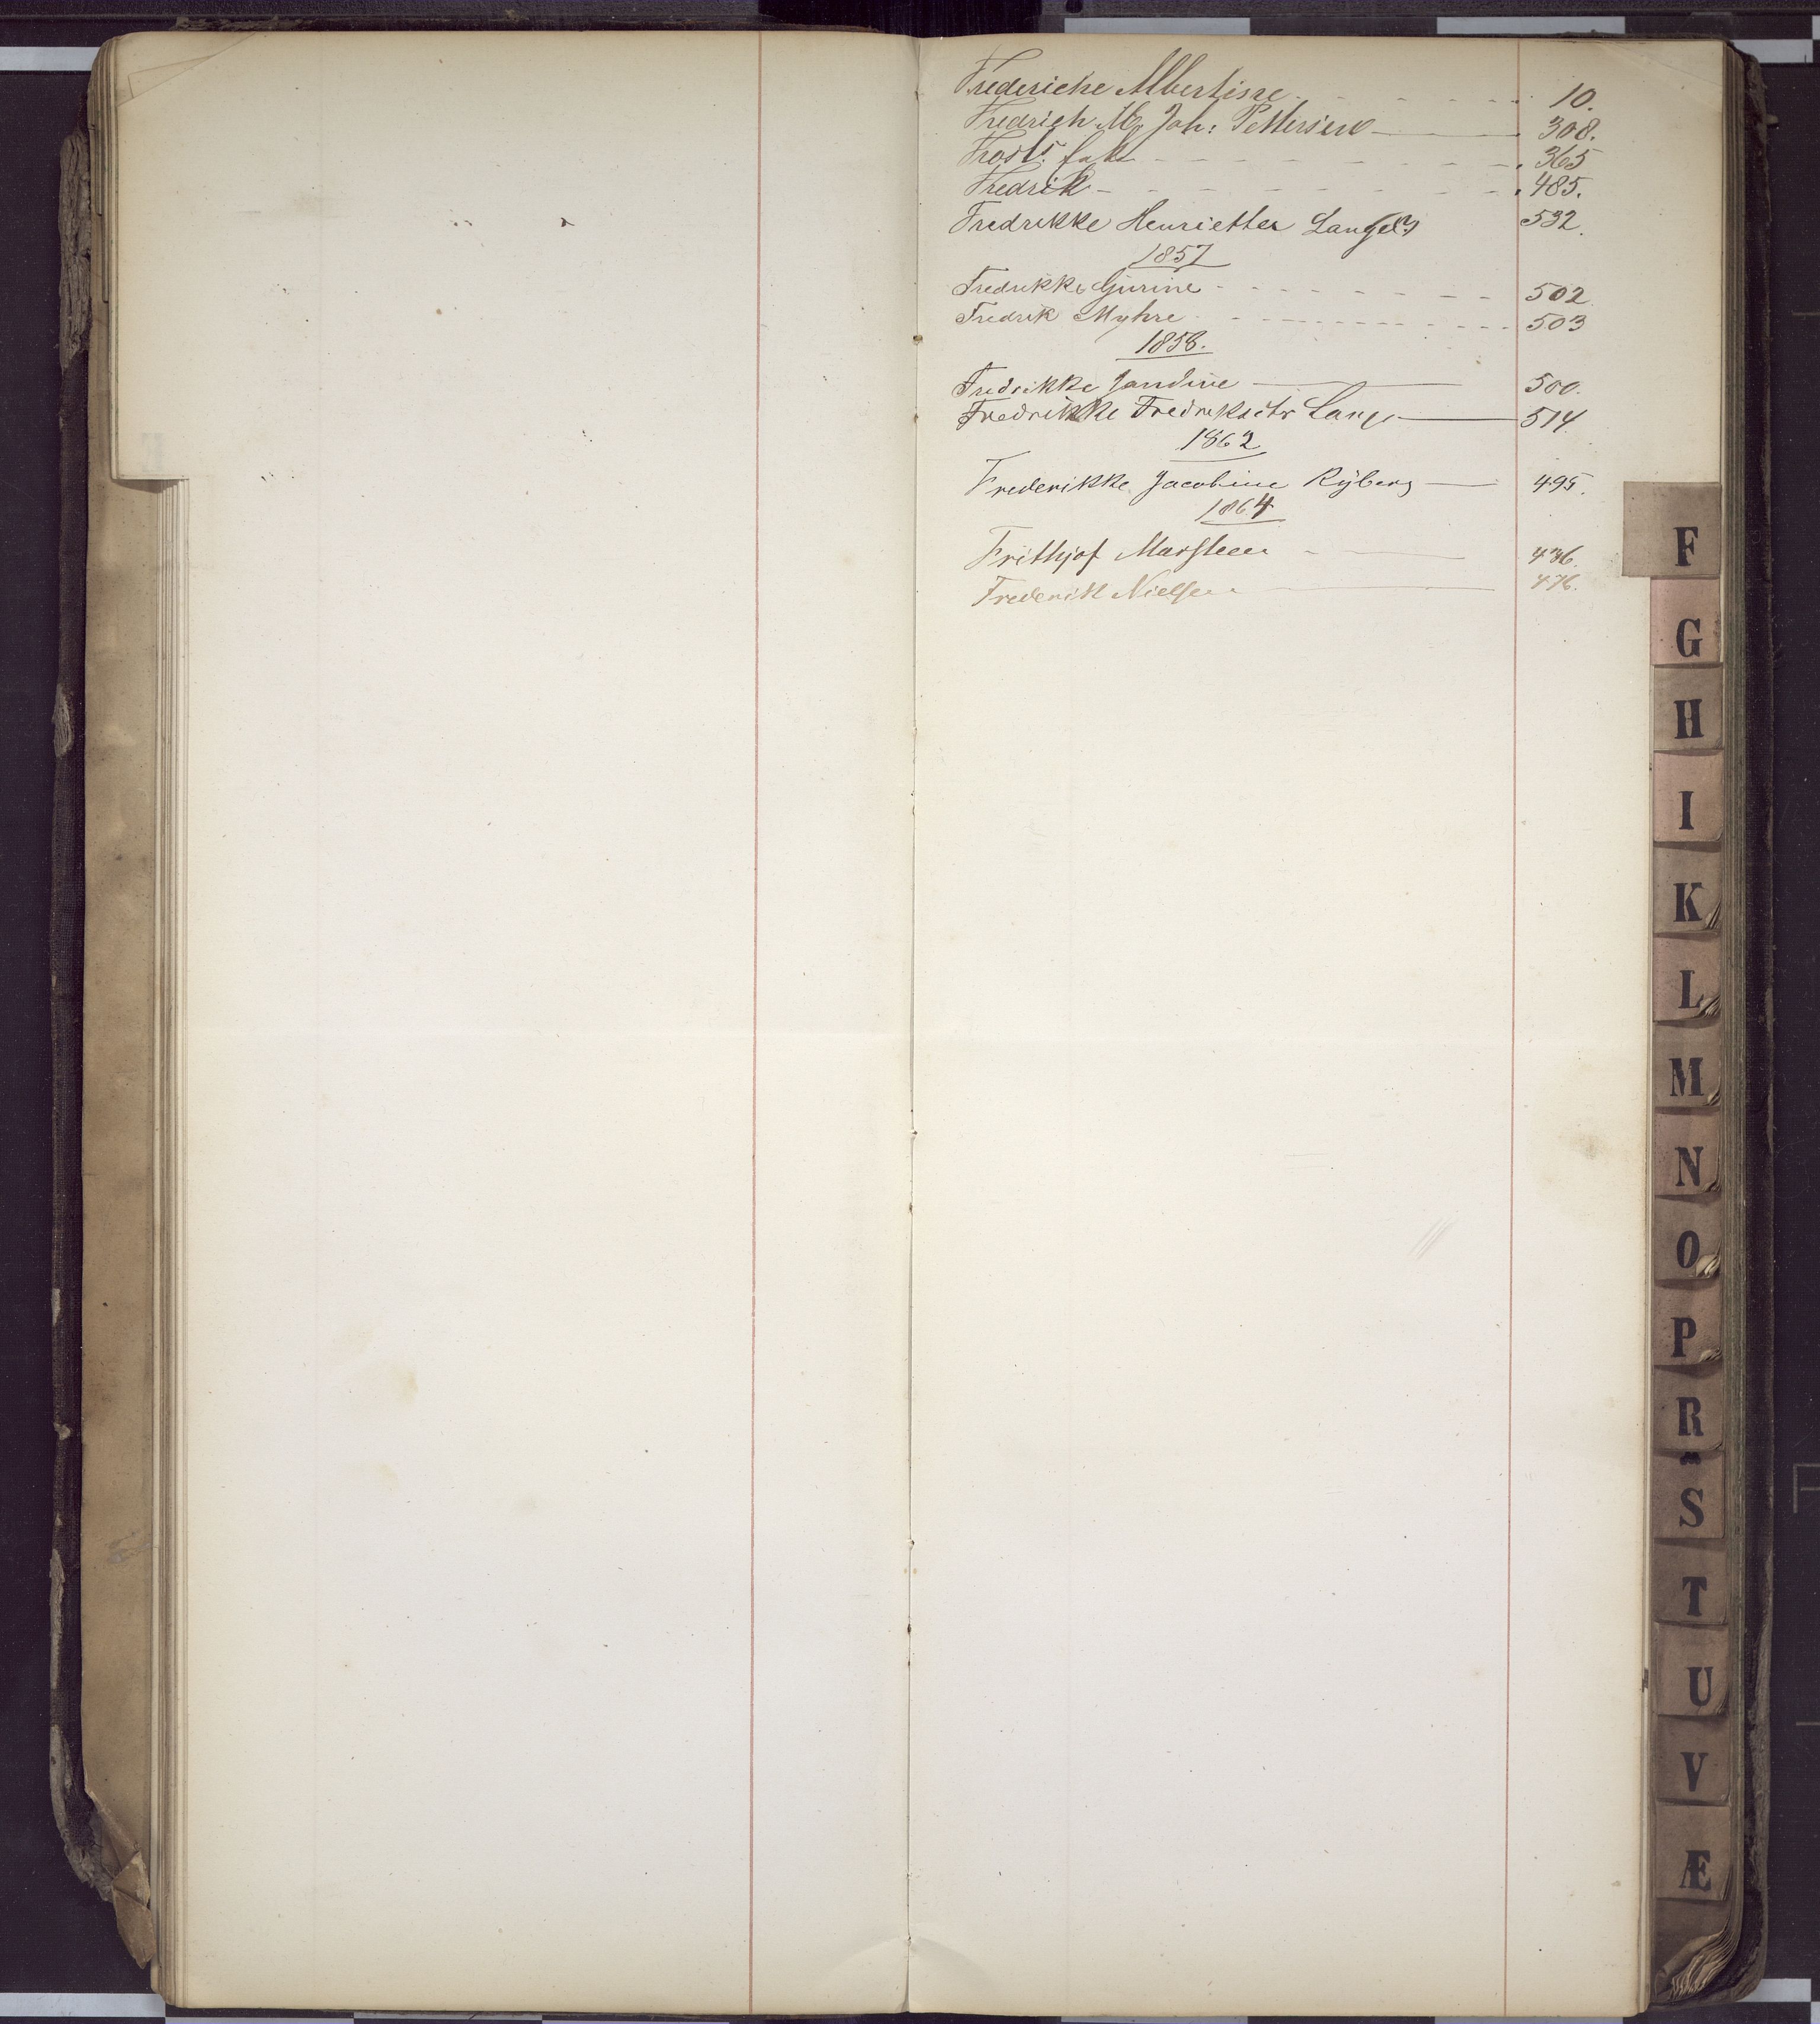 Frederiche Albertine 10.
Fredrich M Joh: Pettersen 308.
Frosts 365
Fredrik 485.
Fredrikke Henriette Lange 532.
1857
Fredrikke Gurine 502
Fredrik Myhre 503
1858.
Fredrikke Jandine 500.
Fredrikke Fredriksdtr Lange 514
1862
Frederikke Jacobine Rÿberg 495.
1864
Frithjof Marsteen 476.
Frederik Nielsen 476.
F
G
H
I
K
L
M
N
O
P
R
S
T
U
V
Æ